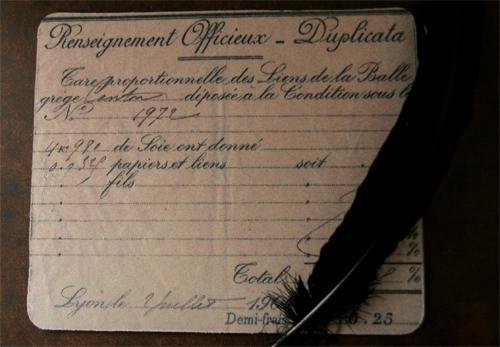 Renseignement Officieux - Duplicata
Tare proportionnelle des Liens de la Balle
grège Canton déposée à la Condition sous l
No 1972
4k,981 de Soie ont donné
papiers et liens soit
fils
%
%
Total %
Lyon, le 2 Juillet 19
Demi-frais 0.25